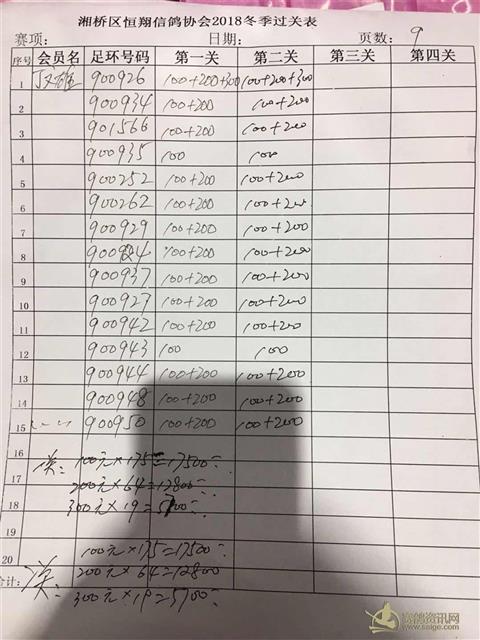 湘桥区恒翔信鸽协会2018冬季过关表
赛项: 日期: 页数: 9
序号 会员名 足环号码 第一关 第二关 第三关 第四关
1 900926 100+200+300 100+200+300
2 900934 100+200 100+200
3 901566 100+200 100+200
4 900935 100 100
5 900252 100+200 100+200
6 900262 100+200 100+200
7 900929 100+200 100+200
8 900924 100+200 100+200
9 900937 100+200 100+200
10 900927 100+200 100+200
11 900942 100+200 100+200
12 900943 100 100
13 900944 100+200 100+200
14 900948 100+200 100+200
15 900950 100+200 100+200
16
100元×175=17500
17
200元×64=12800
18 300元×19=5700
100元×175=17500
20
合计: 200元×64=12800
300元×19=5700
赛鸽资讯网
www.saige.com